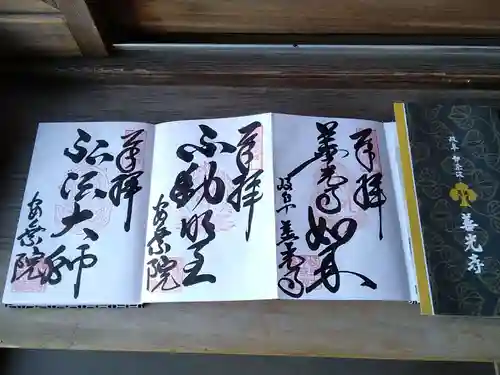 奉拝
善光寺如来
岐阜 善光寺
奉拝
不動明王
安乗院
奉拝
弘法大師
安乗院
岐阜 伊奈波
善光寺